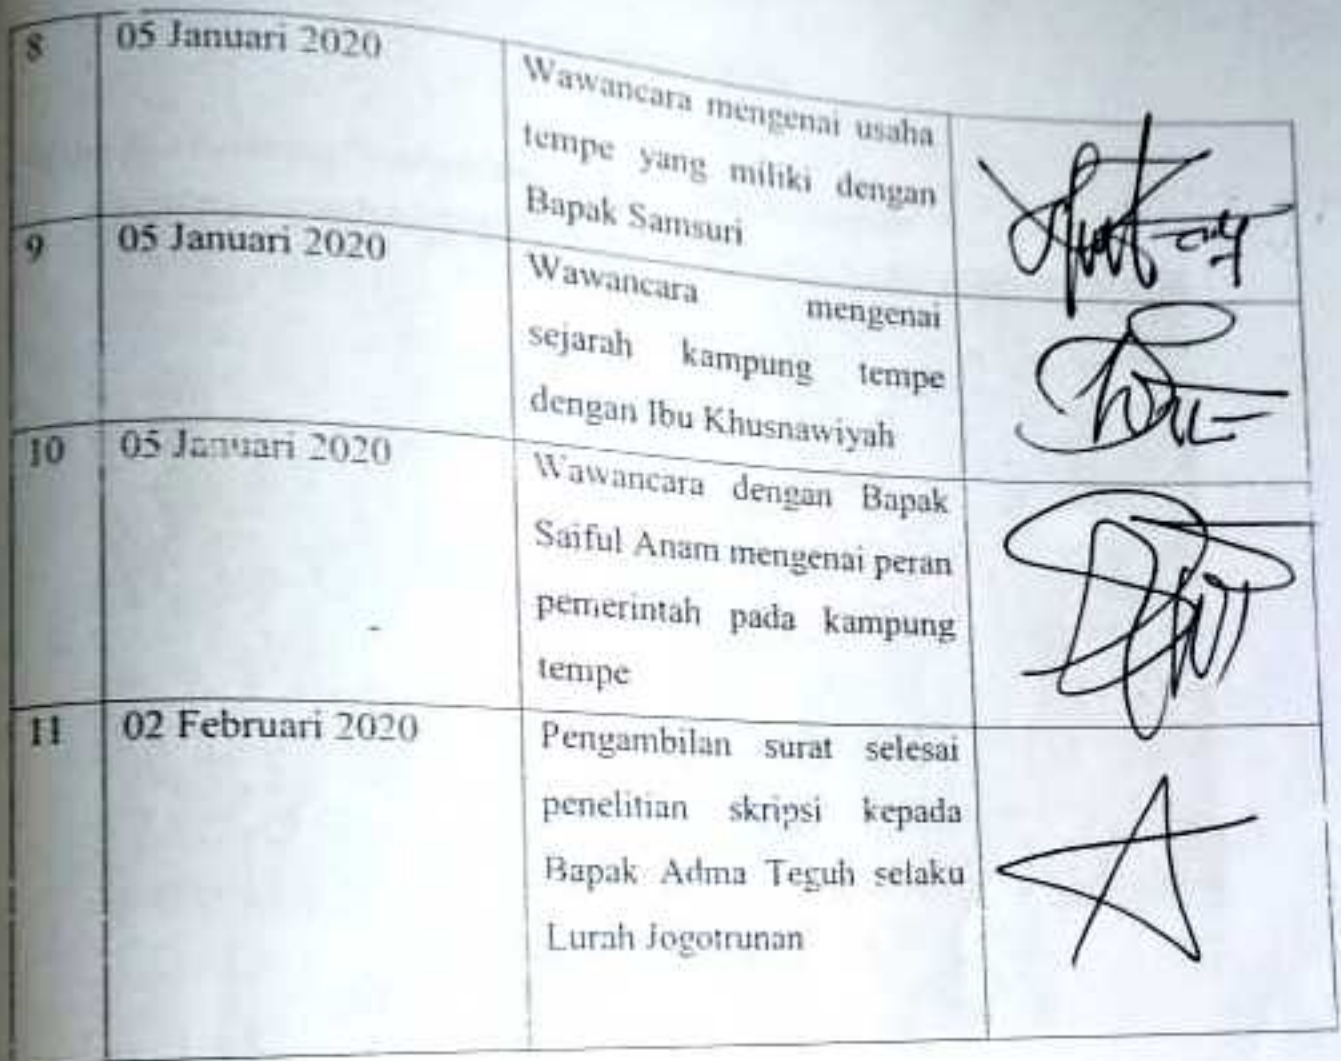 8 05 Januari 2020
Wawancara mengenai usaha
tempe yang miliki dengan
Bapak Samsuri
9 05 Januari 2020
Wawancara mengenai
sejarah kampung tempe
dengan Ibu Khusnawiyah
10 05 Januari 2020
Wawancara dengan Bapak
Saiful Anam mengenai peran
pemerintah pada kampung
tempe
11 02 Februari 2020
Pengambilan surat selesai
penelitian skripsi kepada
Bapak Adma Teguh selaku
Lurah Jogotrunan